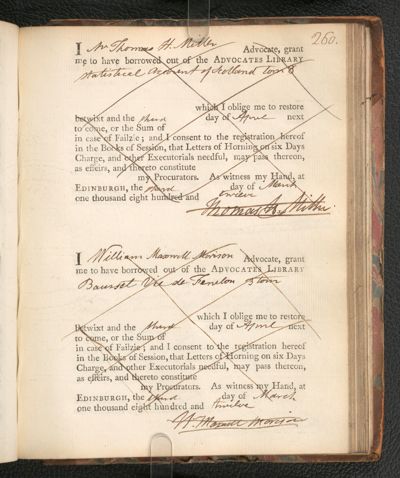 260.
I Mr Thomas H. Miller Advocate, grant
me to have borrowed out of the ADVOCATES LIBRARY
Statistical Account of Scotland tom 8
which I oblige me to restore
betwixt and the third day of April next
to come, or the Sum of
in case of Failzie; and I consent to the registration hereof
in the Books of Session, that Letters of Horning on six Days
Charge, and other Executorials needful, may pass thereon,
as effeirs, and thereto constitute
my Procurators. As witness my Hand, at
EDINBURGH, the third day of March
one thousand eight hundred and twelve
Thomas H. Miller.
I William Maxwell Morison Advocate, grant
me to have borrowed out of the ADVOCATES LIBRARY
Bausset Vie de Fenelon 3 tom
which I oblige me to restore
betwixt and the third day of April next
to come, or the Sum of
in case of Failzie; and I consent to the registration hereof
in the Books of Session, that Letters of Horning on six Days
Charge, and other Executorials needful, may pass thereon,
as effeirs, and thereto constitute
my Procurators. As witness my Hand, at
EDINBURGH, the third day of March
one thousand eight hundred and twelve
W. Maxwell Morison